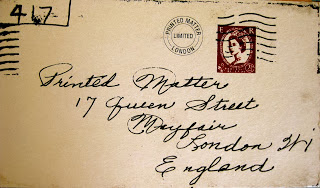 417
PRINTED MATTER
LIMITED
LONDON
E R
Printed Matter
17 Queen Street
Mayfair
London W1
England